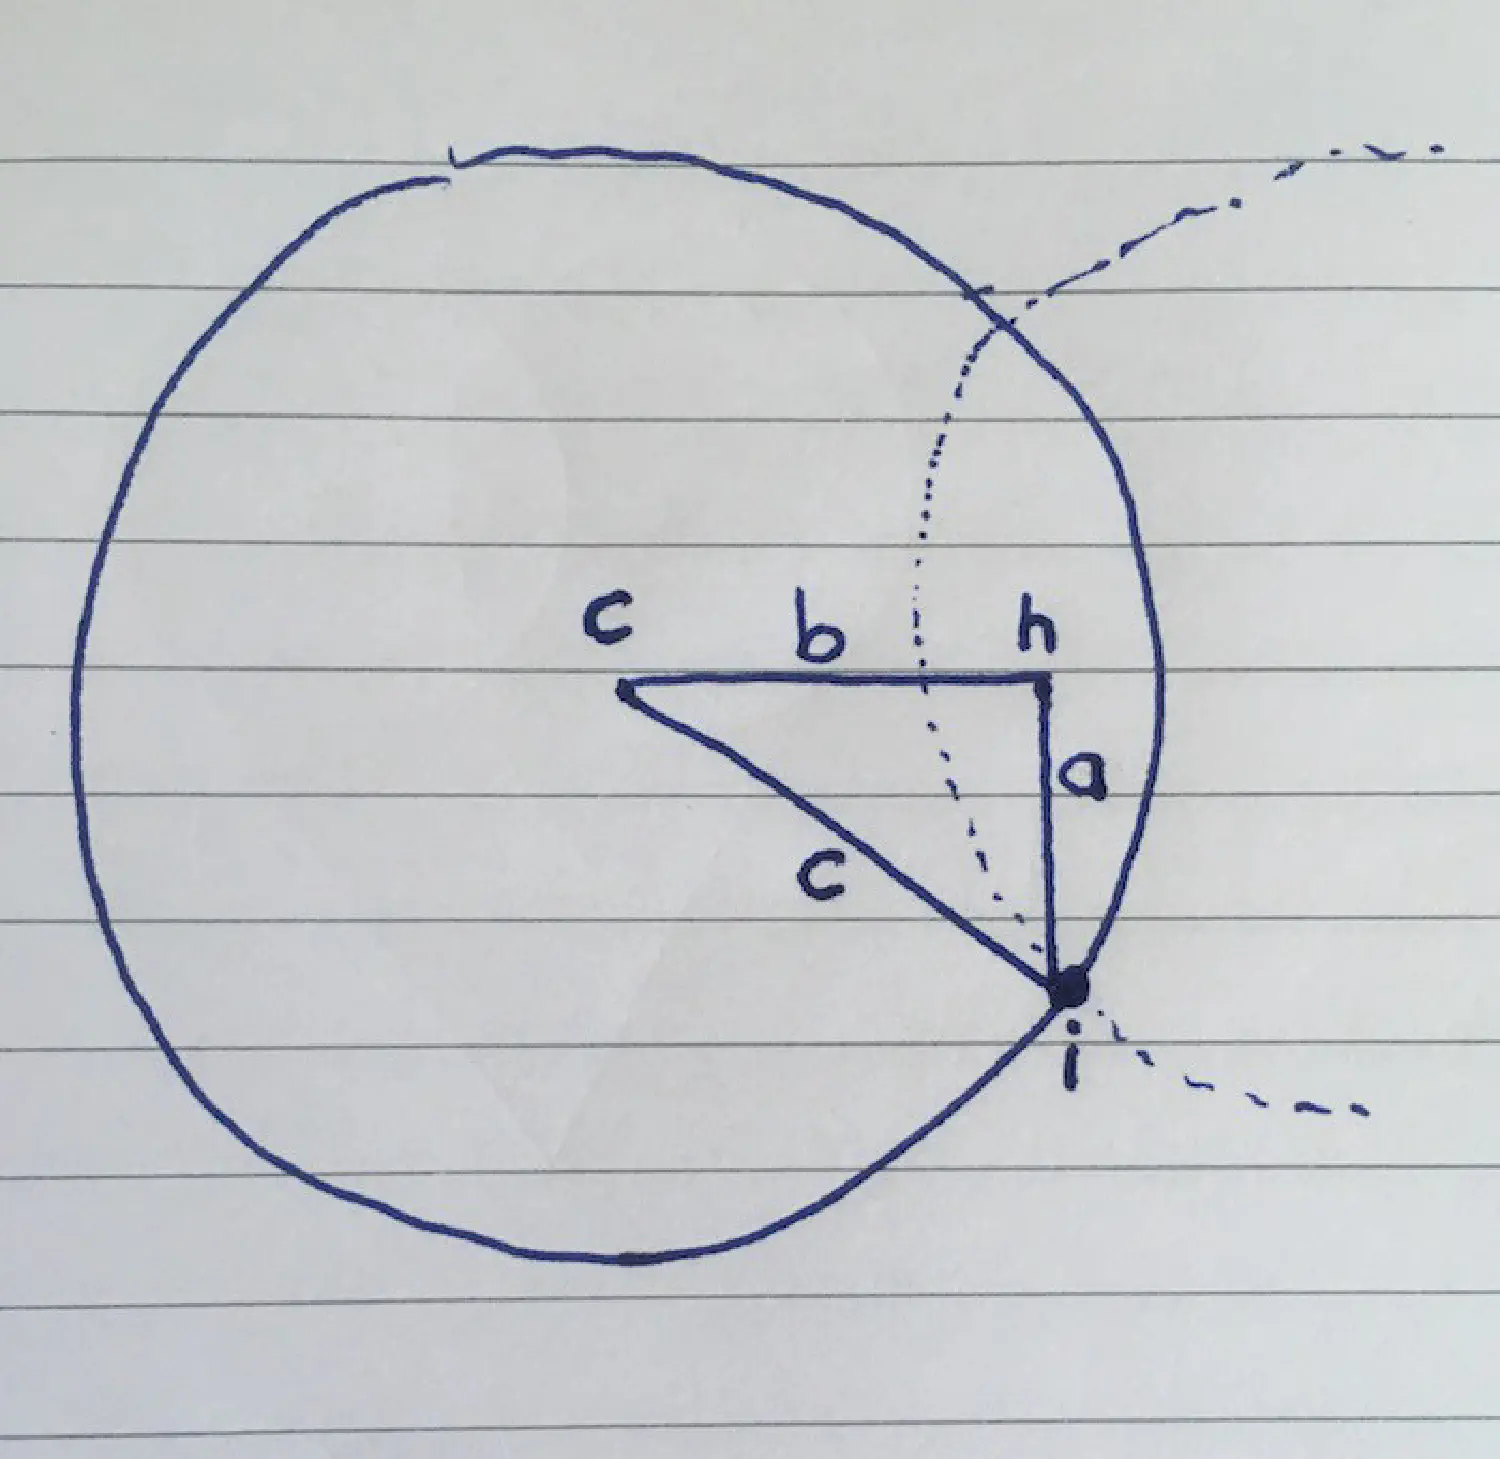 c b h
a
c
i